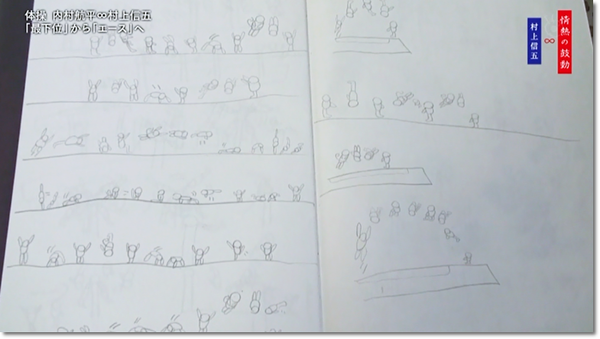 体操 内村航平∞村上信五
「最下位」から「エース」へ
情熱の鼓動
∞
村上信五